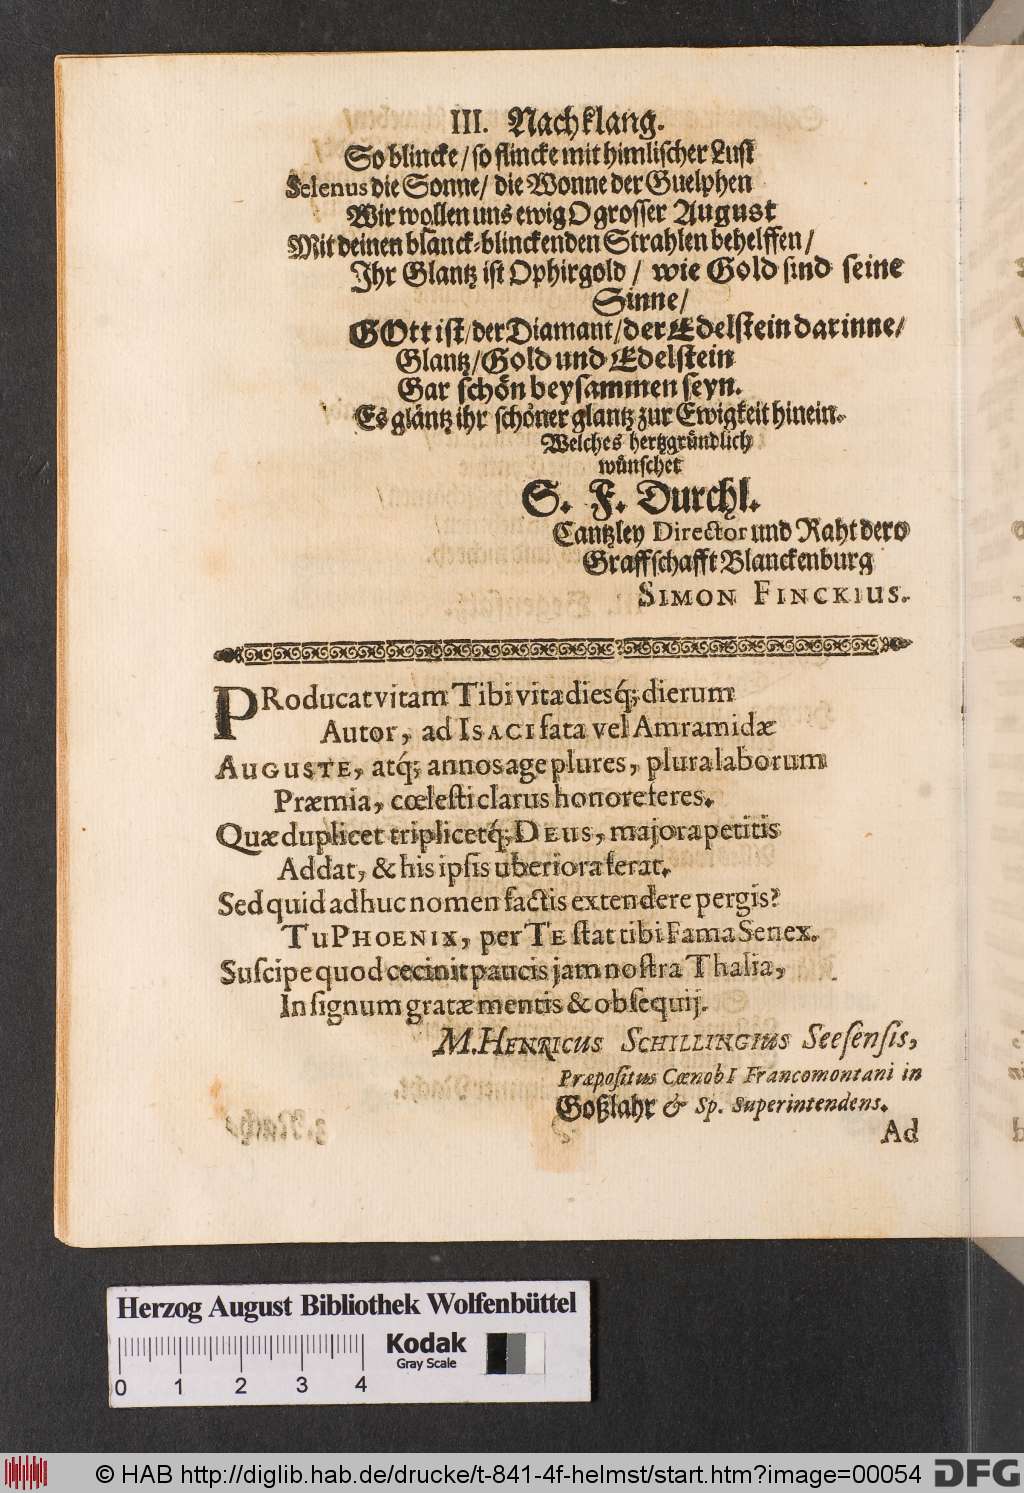 III. Nachklang.
So blincke / so flincke mit himlischer Lust
Selenus die Sonne / die Wonne der Guelphen
Wir wollen uns ewig O grosser August
Mit deinen blanck-blinckenden Strahlen behelffen /
Ihr Glantz ist Ophirgold / wie Gold sind seine
Sinne /
GOtt ist / der Diamant / der Edelstein darinne /
Glantz / Gold und Edelstein
Gar schön beysammen seyn.
Es gläntz ihr schöner glantz zur Ewigkeit hinein.
Welches hertzgründlich
wünschet
S. F. Durchl.
Cantzley Director und Raht dero
Graffschafft Blanckenburg
SIMON FINCKIUS.
PRoducat vitam Tibi vita diesq́; dierum
Autor, ad ISACI fata vel Amramidæ
AUGUSTE, atq́; annos age plures, plura laborum
Præmia, cœlesti clarus honore feres.
Quæ duplicet triplicetq́; DEUS, majora petitis
Addat, & his ipsis uberiora ferat.
Sed quid adhuc nomen factis extendere pergis?
Tu PHOENIX, per TE stat tibi Fama Senex.
Suscipe quod cecinit paucis jam nostra Thalia,
In signum gratæ mentis & obsequij.
M. HENRICUS SCHILLINGIUS Seesensis,
Præpositus CœnobI Francomontani in
Goßlahr & Sp. Superintendens.
Ad
Herzog August Bibliothek Wolfenbüttel
Kodak
Gray Scale
0 1 2 3 4
© HAB http://diglib.hab.de/drucke/t-841-4f-helmst/start.htm?image=00054
DFG